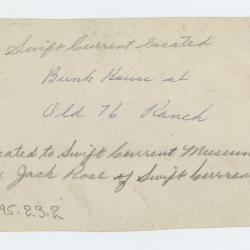 Swift Current located
Bunk House at
Old 76 Ranch
cated to Swift Current Museum
Jack Rose of Swift Curren
95.23.2